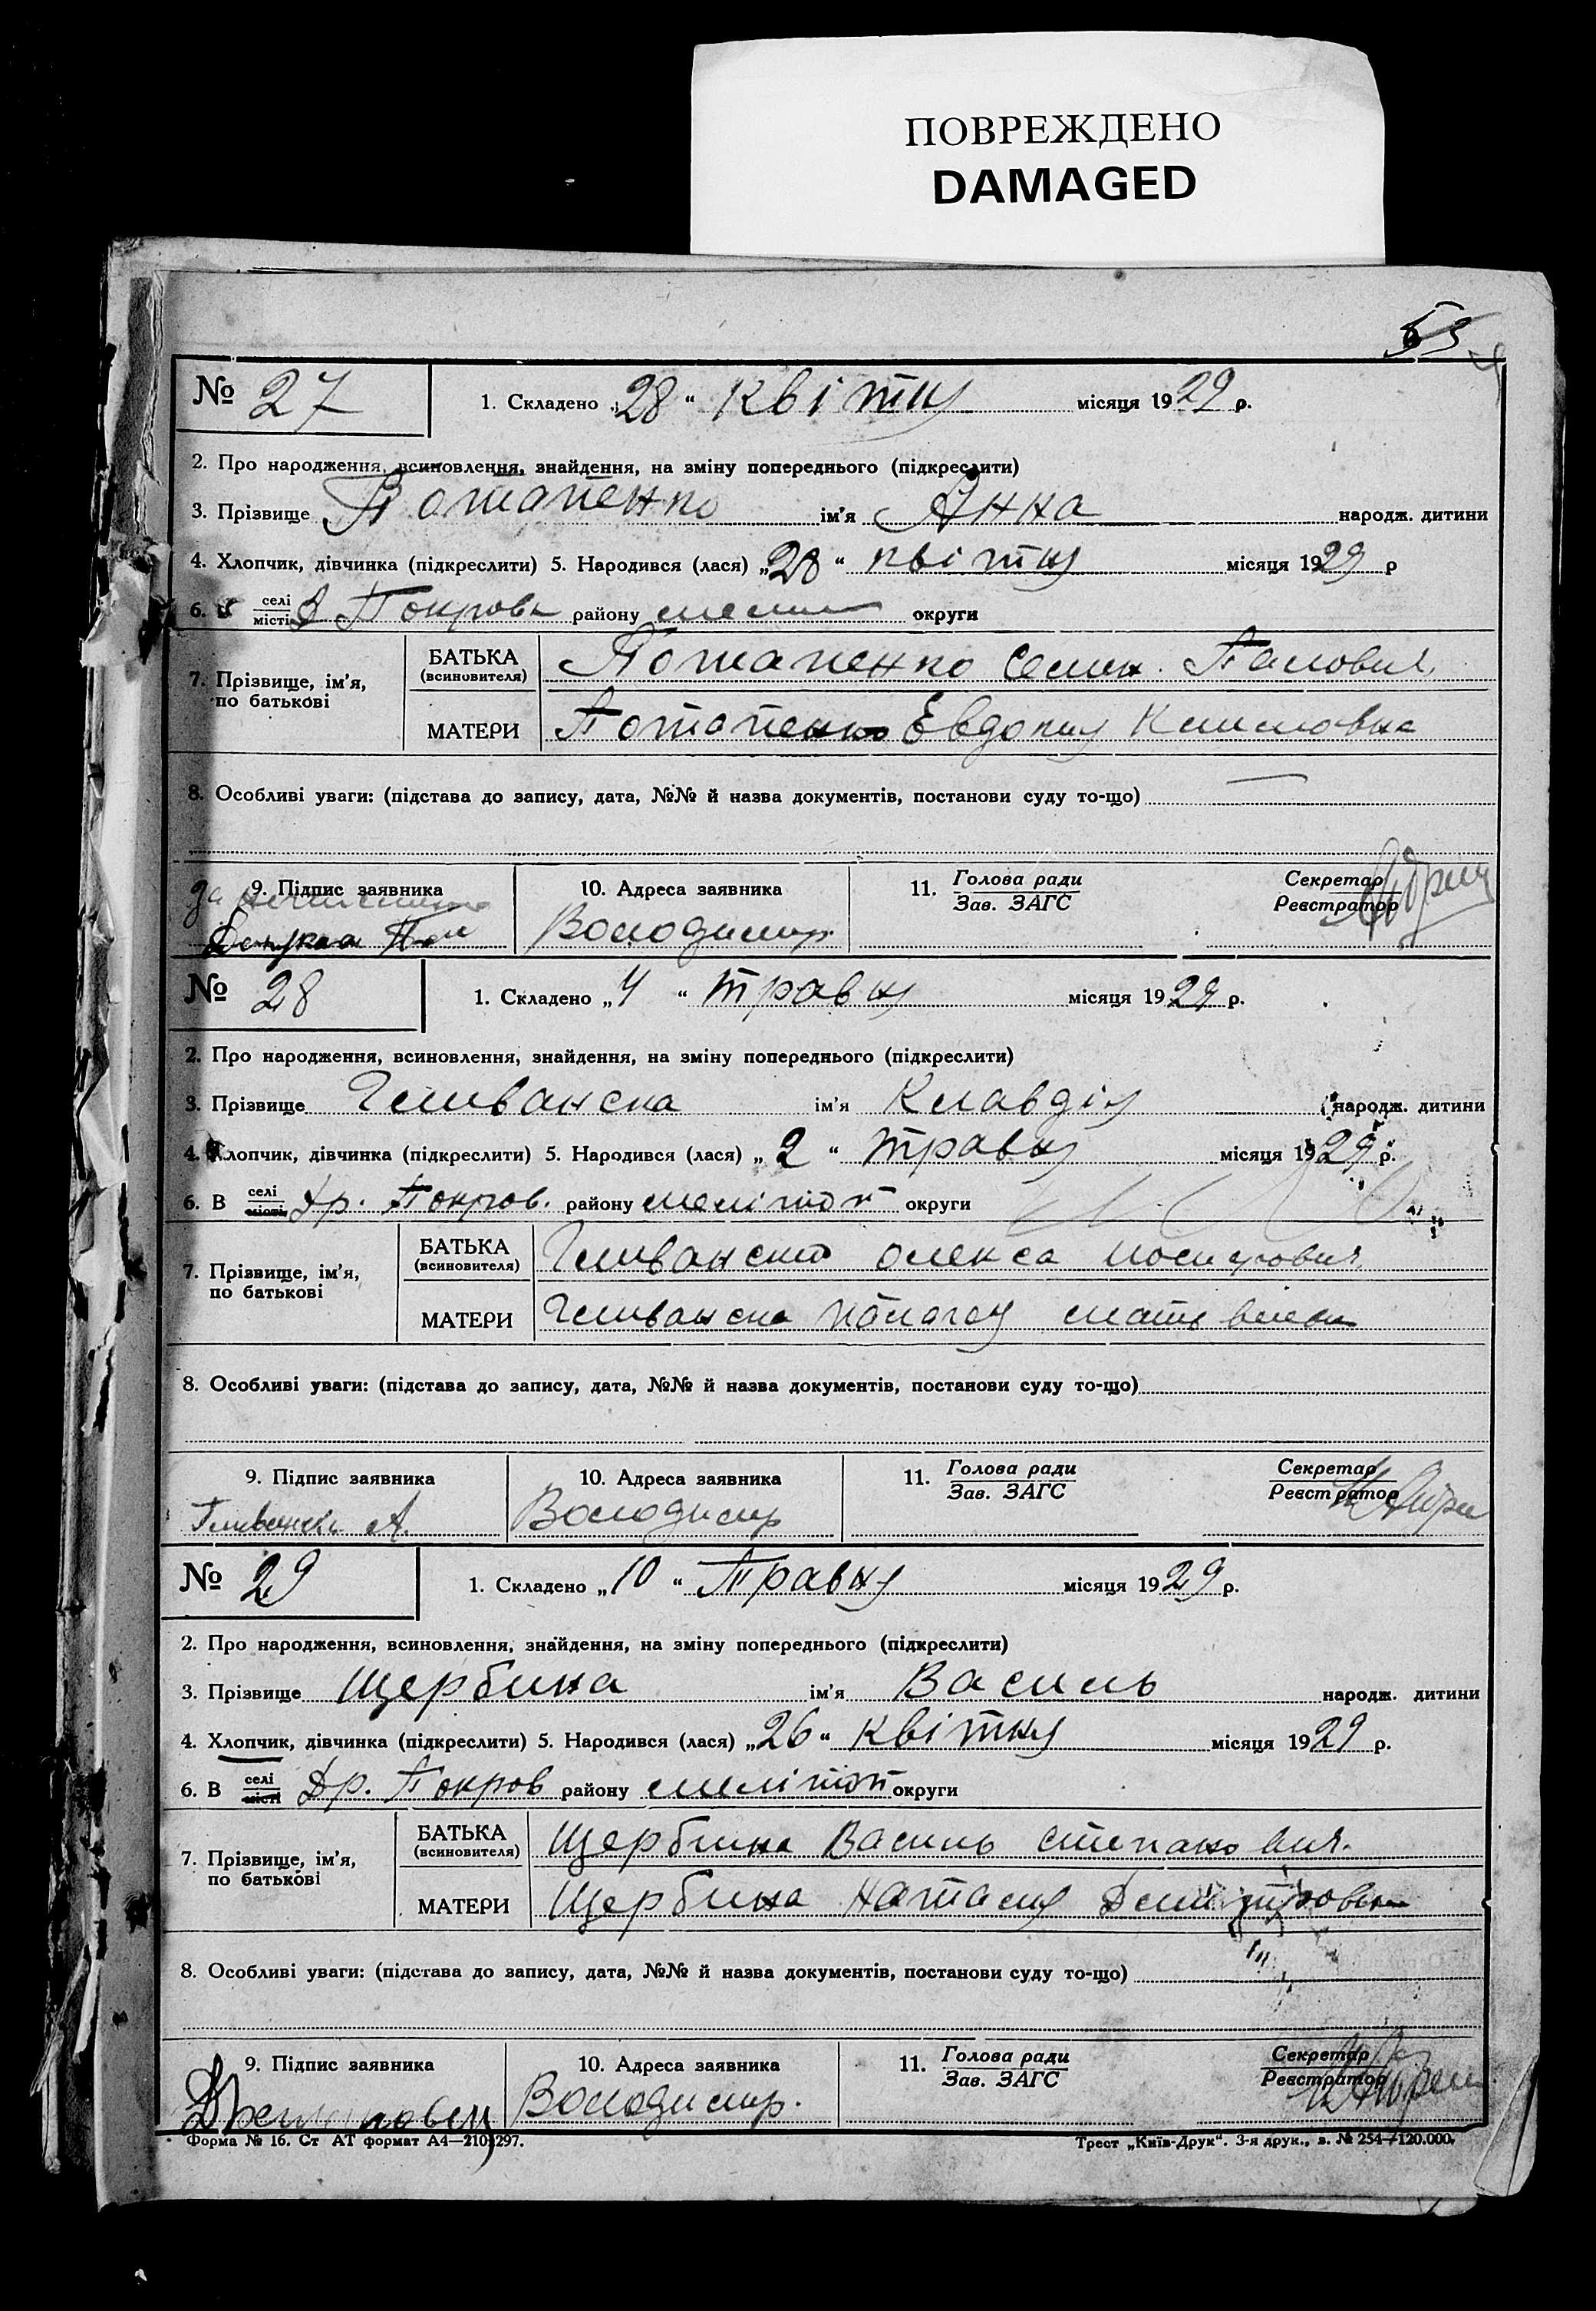 ПОВРЕЖДЕНО
DAMAGED
53
№ 27 1. Складено „28“ квітня місяця 1929 р.
2. Про народження, всиновлення, знайдення, на зміну попереднього (підкреслити)
3. Прізвище Потапенко ім’я Анна народж. дитини
4. Хлопчик, дівчинка (підкреслити) 5. Народився (лася) „28“ квітня місяця 1929 р
6. В селі місті Покровс району округи
7. Прізвище, ім’я, по батькові БАТЬКА (всиновителя) Потапенко Семен Павлович
МАТЕРИ Потапенко Евдокия Климовна
8. Особливі уваги: (підстава до запису, дата, №№ й назва документів, постанови суду то-що)
9. Підпис заявника 10. Адреса заявника 11. Голова ради Зав. ЗАГС Секретар Реєстратор
за
Володимир.
№ 28 1. Складено „4“ травня місяця 1929 р.
2. Про народження, всиновлення, знайдення, на зміну попереднього (підкреслити)
3. Прізвище Гливанска ім’я Клавдія народж. дитини
4. Хлопчик, дівчинка (підкреслити) 5. Народився (лася) „2“ травня місяця 1929 р.
6. В селі місті Др. Покров. району мелітоп округи
7. Прізвище, ім’я, по батькові БАТЬКА (всиновителя) Гливанскій олекса иосипович
МАТЕРИ Гливанска палагея
8. Особливі уваги: (підстава до запису, дата, №№ й назва документів, постанови суду то-що)
9. Підпис заявника 10. Адреса заявника 11. Голова ради Зав. ЗАГС Секретар Реєстратор
Гливански А. Володимир
№ 29 1. Складено „10“ Травня місяця 1929 р.
2. Про народження, всиновлення, знайдення, на зміну попереднього (підкреслити)
3. Прізвище Щербина ім’я Василь народж. дитини
4. Хлопчик, дівчинка (підкреслити) 5. Народився (лася) „26“ квітня місяця 1929 р.
6. В селі місті Др. Покров району мелітоп округи
7. Прізвище, ім’я, по батькові БАТЬКА (всиновителя) Щербина Василь степанович.
МАТЕРИ Щербина Натасия
8. Особливі уваги: (підстава до запису, дата, №№ й назва документів, постанови суду то-що)
9. Підпис заявника 10. Адреса заявника 11. Голова ради Зав. ЗАГС Секретар Реєстратор
Володимир.
Форма № 16. Ст АТ формат А4—210×297. Трест „Київ-Друк“. 3-я друк., з. № 254—120.000.